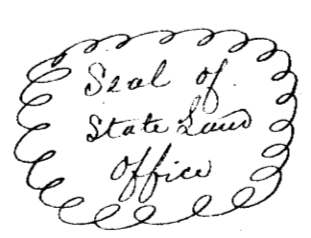 Seal of
State Land
Office